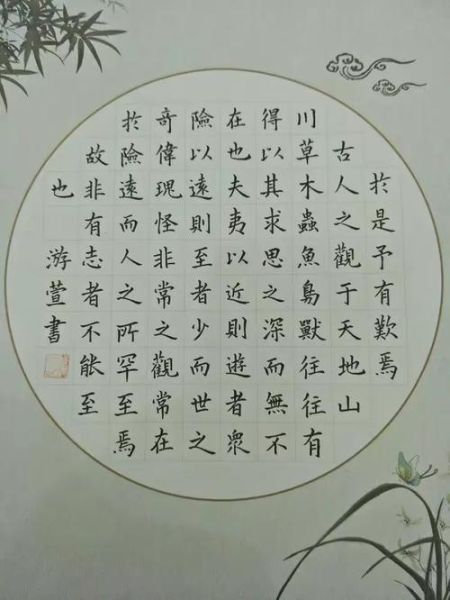 於是予有歎焉
古人之觀于天地山
川草木蟲魚鳥獸往往有
得以其求思之深而無不
在也夫夷以近則遊者衆
險以遠則至者少而世之
奇偉瑰怪非常之觀常在
於險遠而人之所罕至焉
故非有志者不能至
也
游萱書